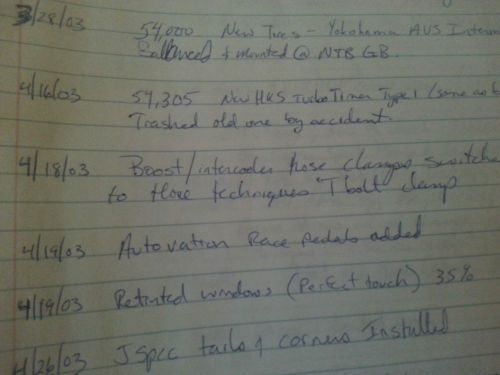 3/28/03 54,000 New Tires - Yokohama AVS Interm
Ballanced & mounted @ NTB GB.
4/16/03 54,305 New HKS Turbo Timer Type 1 (same as b
Trashed old one by accident.
4/18/03 Boost/intercooler hose clamps switche
to Hose techniques T bolt clamp
4/19/03 Autovation Race pedals added
4/19/03 Retinted windows (Perfect touch) 35%
4/26/03 JSpec tails & corners Installed